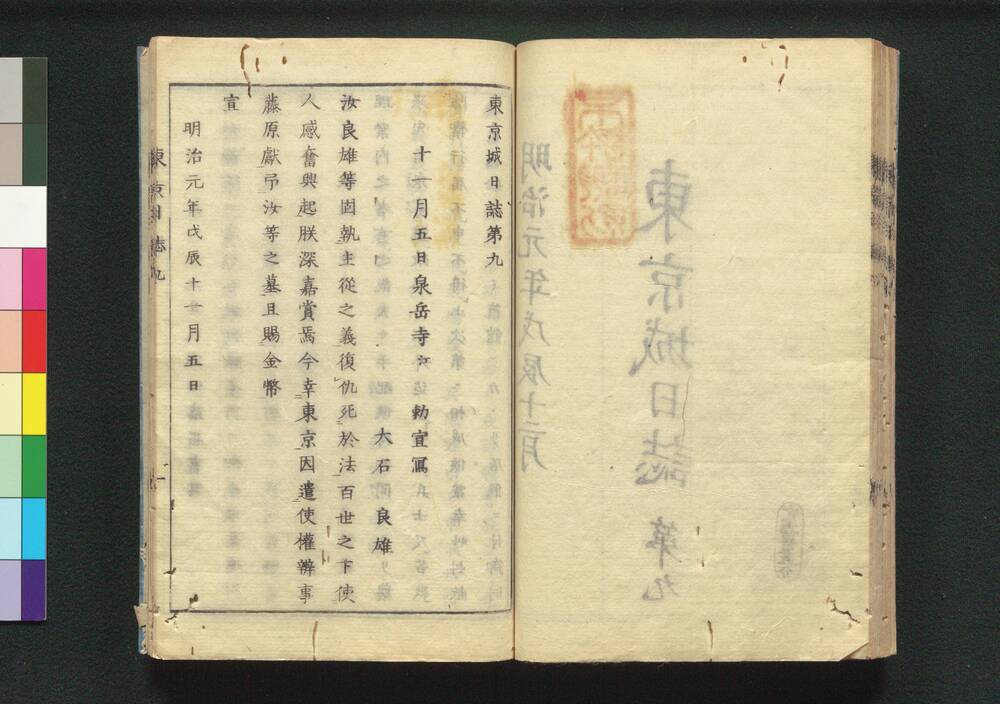 東京城日誌第九
明治元年戊辰十二月
東京城日誌 第九
十一月五日泉岳寺江 勅宣寫
大石良雄
汝良雄等固執主從之義復仇死於法百世之下使
人感奮興起朕深嘉賞焉今幸東京因遣使權辨事
藤原獻弔汝等之墓且賜金幣
宣
明治元年戊辰十一月五日
東京日誌九
一